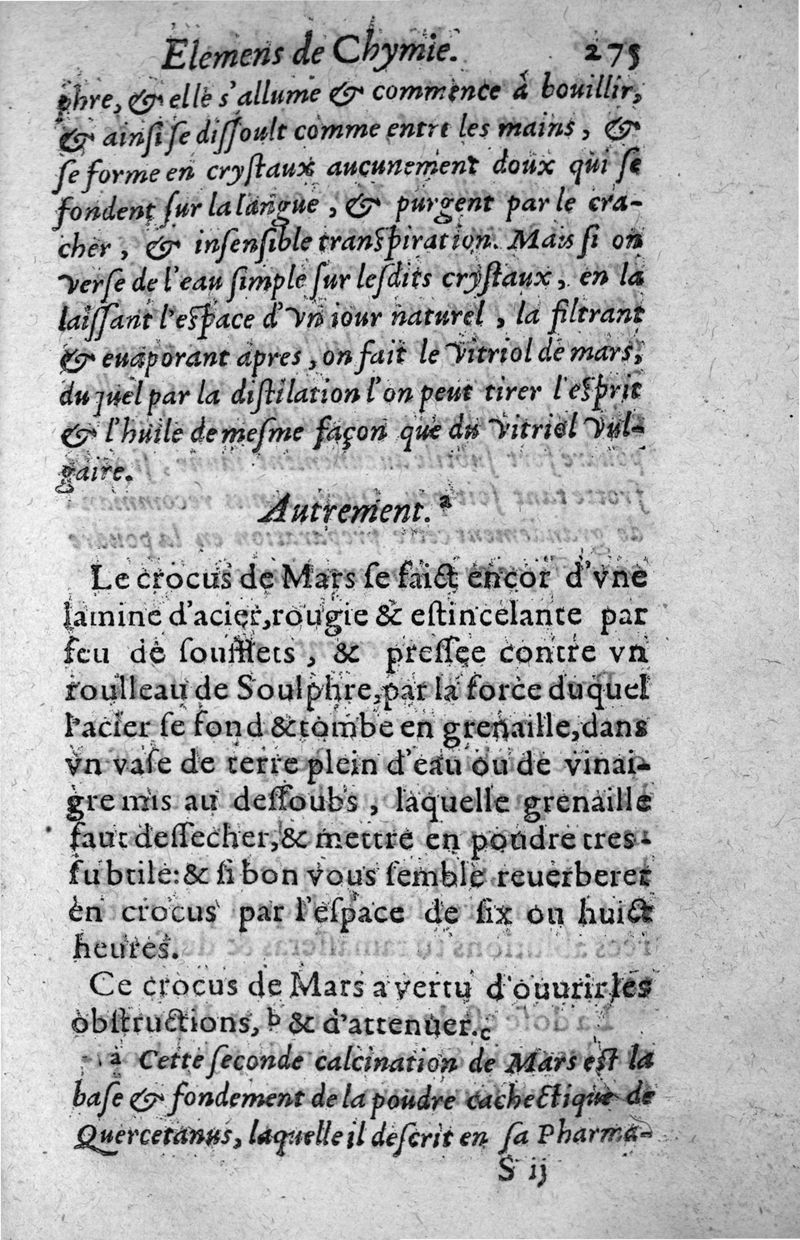 Elemens de Chymie. 275
phre, & elle s'allume & commence à bouillir,
& ainsi se dissoult comme entre les mains, &
se forme en crystaux aucunement doux qui se
fondent sur la langue, & purgent par le cra-
cher, & insensible transpiration. Mais si on
verse de l'eau simple sur lesdits crystaux, en la
laissant l'espace d'vn iour naturel, la filtrant
& euaporant apres, on fait le vitriol de mars,
duquel par la distilation l'on peut tirer l'esprit
& l'huile de mesme façon que du vitriol vul-
gaire.
Autrement. a
Le crocus de Mars se faict encor d'vne
lamine d'acier, rougie & estincelante par
feu de soufflets, & pressée contre vn
roulleau de Soulphre, par la force duquel
l'acier se fond & tombe en grenaille, dans
vn vase de terre plein d'eau ou de vinai-
gre mis au dessoubs, laquelle grenaille
faut dessecher, & mettre en poudre tres-
subtile: & si bon vous semble reuerberer
en crocus par l'espace de six ou huict
heures.
Ce crocus de Mars a vertu d'ouurir les
obstructions, b & d'attenuer. c
a Cette seconde calcination de Mars est la
base & fondement de la poudre cachectique de
Quercetanus, laquelle il descrit en sa Pharma-
S ij